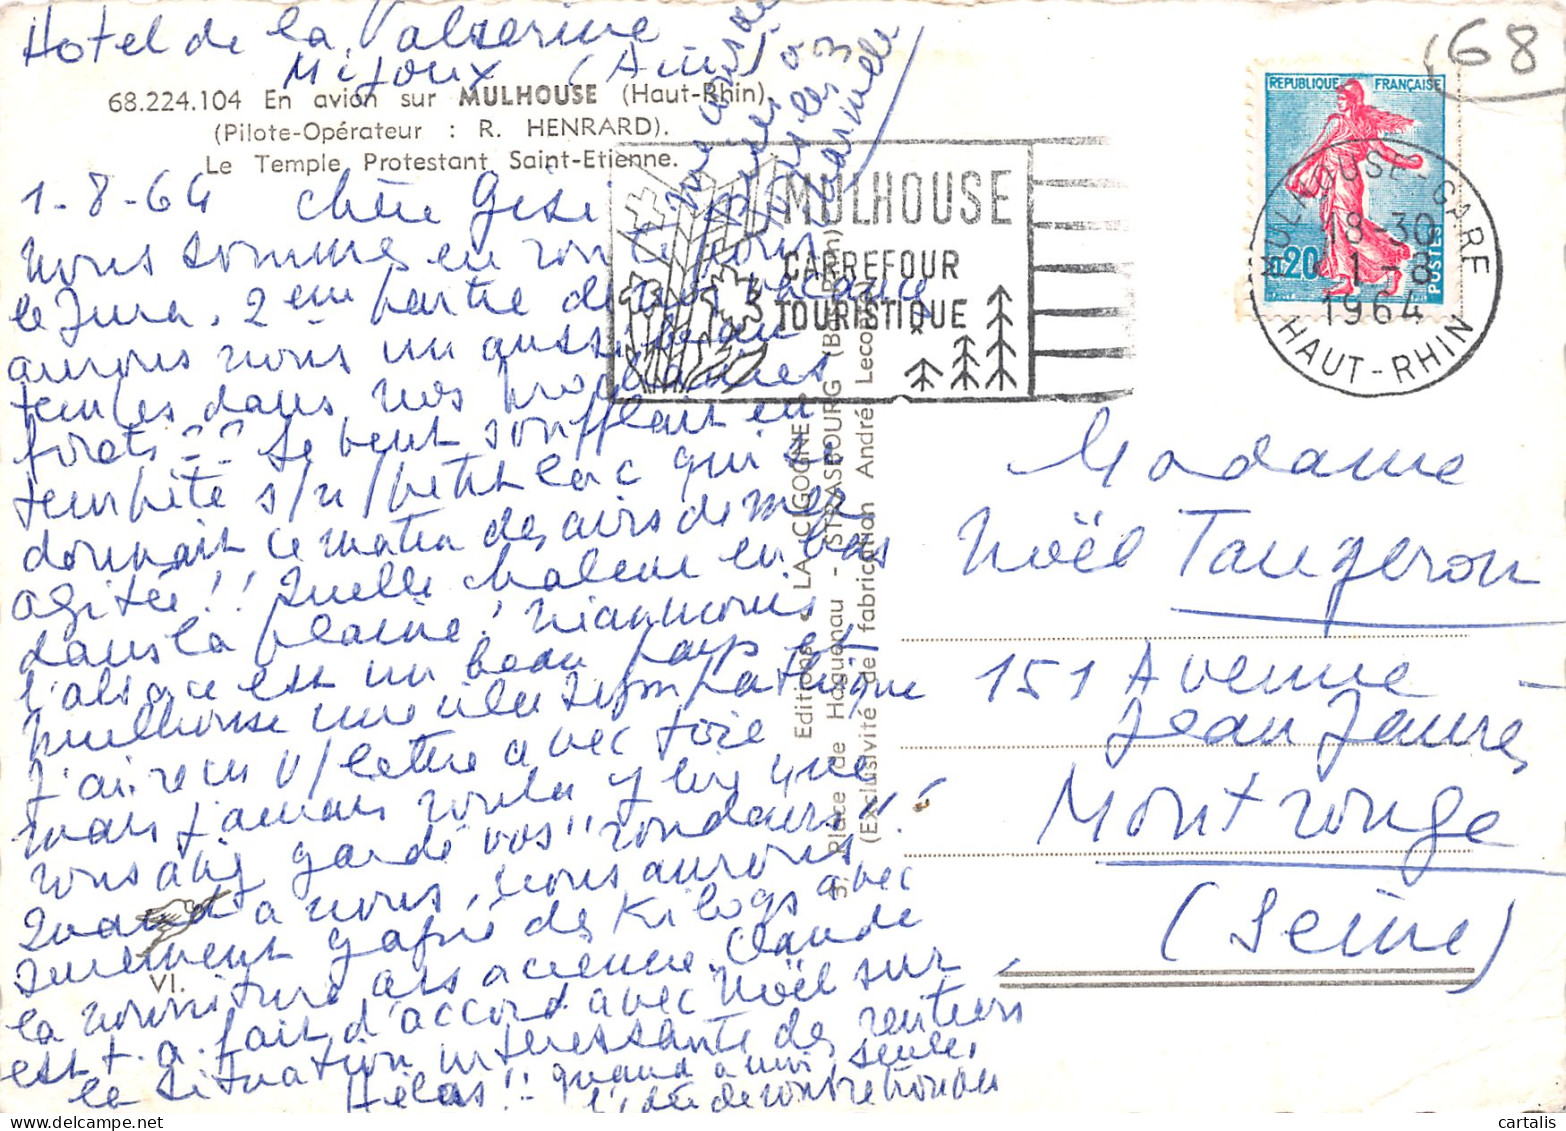 Hotel de la Valserine
Mijoux (Ain)
68.224.104 En avion sur MULHOUSE (Haut-Rhin)
(Pilote-Opérateur : R. HENRARD).
Le Temple Protestant Saint-Etienne.
1-8-64 Chère Gisi
nous sommes en route pour
le Jura, 2 em partie de nos vacances
aurons nous un aussi beau
temps dans nos prochaines
forets ?? Le vent soufflait en
tempête s/n/petit lac qui se
donnait ce matin des airs de mer
agitée!! Quelle chaleur en bas
dans la plaine! Néanmoins
l'alsace est un beau pays et
Mulhouse une ville sympathique
J'ai reçu v/lettre avec joie
mais jamais voulu y lire que
vous avez gardé vos "rondeurs"!
Quand à nous, nous aurons
surement gagné des Kilogs avec
la nourriture alsacienne. Claude
est t. a. fait d'accord avec Noël sur
la situation interessante des rentiers
Hélas!! quand à moi seule,
l'idée de votre
MULHOUSE
CARREFOUR
TOURISTIQUE
Editions LA CIGOGNE
5, Place de Haguenau - STRASBOURG (Bas-Rhin)
(Exclusivité de fabrication André Leconte)
VI.
68
REPUBLIQUE FRANÇAISE
0,20
POSTES
MULHOUSE-GARE
18-30
1-8
1964
HAUT-RHIN
Madame
Noël Taugeron
151 Avenue -
Jean Jaurès
Montrouge
(Seine)
cartalis